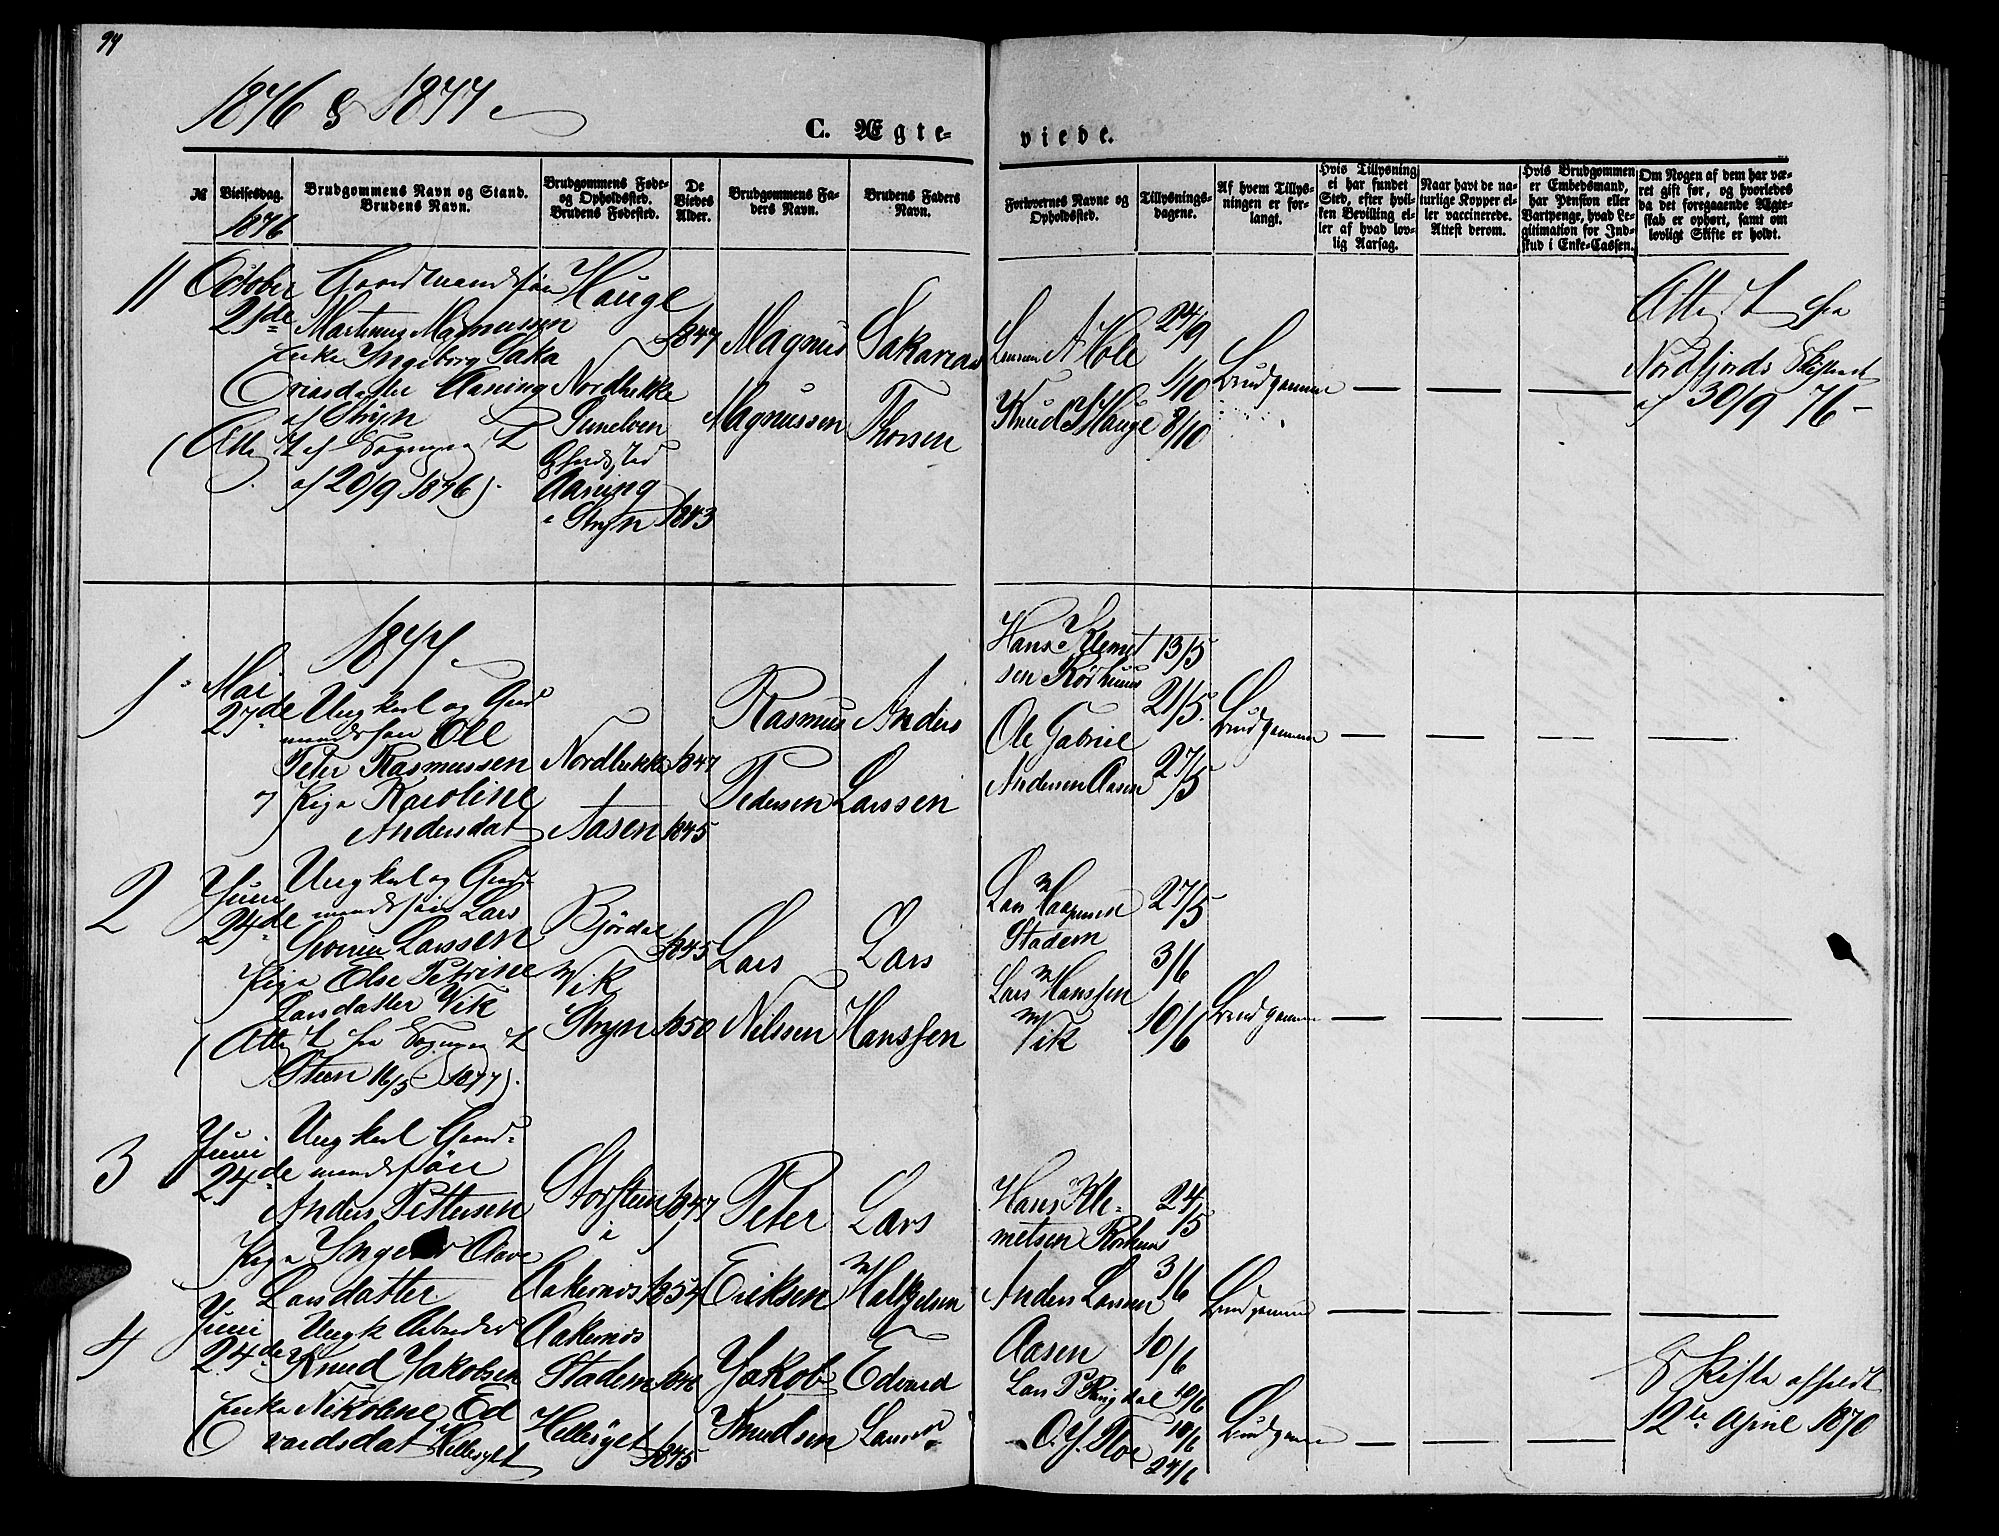 94
1876 & 1877
C. Ægte-
viede.
№
Vielsesdag.
1876
Brudgommens Navn og Stand.
Brudens Navn.
Brudgommens Føde-
og Opholdssted.
Brudens Fødested.
De
Viedes
Alder.
Brudgommens Fa-
ders Navn.
Brudens Faders
Navn.
Forlovernes Navne og
Opholdssted.
Tillysnings-
dagene.
Af hvem Tillys-
ningen er for-
langt.
Hvis Tillysning
ei har fundet
Sted, efter hvil-
ken Bevilling el-
ler af hvad lov-
lig Aarsag.
Naar havt de na-
turlige Kopper el-
ler vaccinerede.
Attest derom.
Hvis Brudgommen
er Embedsmand,
har Pension eller
Vartpenge, hvad Le-
gitimation for Ind-
skud i Enke-Cassen.
Om Nogen af dem har væ-
ret gift før, og hvorledes
da det foregaaende Ægte-
skab er ophørt, samt om
lovligt Skifte er holdt.
11
October
21de
Gaardmandssøn
Martinus Magnussen
Enke Ingeborg Saka
riasdatter Aaning
af Stryn
af 20/9 1876).
Hauge
Nordbekke
Sunelven
Stryn
1847
1843
Magnus
Magnussen
Sakarias
Thorsen
A Hole
Knud Hauge
24/9
1/10
8/10
Brudgommen
— — —
Attest fra
Nordfjords
af 30/9 76 –
1877
1
Mai
27de
Ungkarl og Gaard
mandssøn Ole
Peter Rasmussen
Pige Karoline
Andersdat
Nordbekke
Aasen
1847
1845
Rasmus
Pedersen
Anders
Larssen
Hans Klemet
sen Rørhuus
Ole Gabriel
Andersen Aasen
13/5
21/5
27/5
Brudgommen
— — — —
2
Juni
24de
Ungkarl og Gaard
mandssøn Lars
Severin Larssen
Pige Else Petrine
Larsdatter Vik
16/5 1877).
Bjørdal
Vik
Stryn
1845
1850
Lars
Nilsen
Lars
Hanssen
Lars
Stadem
Lars Hanssen
Vik
27/5
3/6
10/6
Brudgommen
— — — —
3
Juni
24de
Ungkarl Gaard-
mandssøn
Anders Pettersen
Pige Olave
Larsdatter
Storsteen
i
Aakernes
1847
1854
Peter
Eriksen
Lars
Hans Kle-
metsen Rørhuus
Anders Larsen
Aasen
24/5
3/6
10/6
Brudgommen
— — — —
4
Juni
24de
Ungk Arbeider
Knud Jakobsen
Enke Nikoline Ed
vardsdat Hellesylt
Aakernes
Stadem
Hellesylt
1846
1845
Jakob
Knudsen
Edvard
Larsen
Lars P Ringdal
O. J. Moe
10/6
10/6
24/6
Brudgommen
— — —
Skifte afholdt
12te April 1870